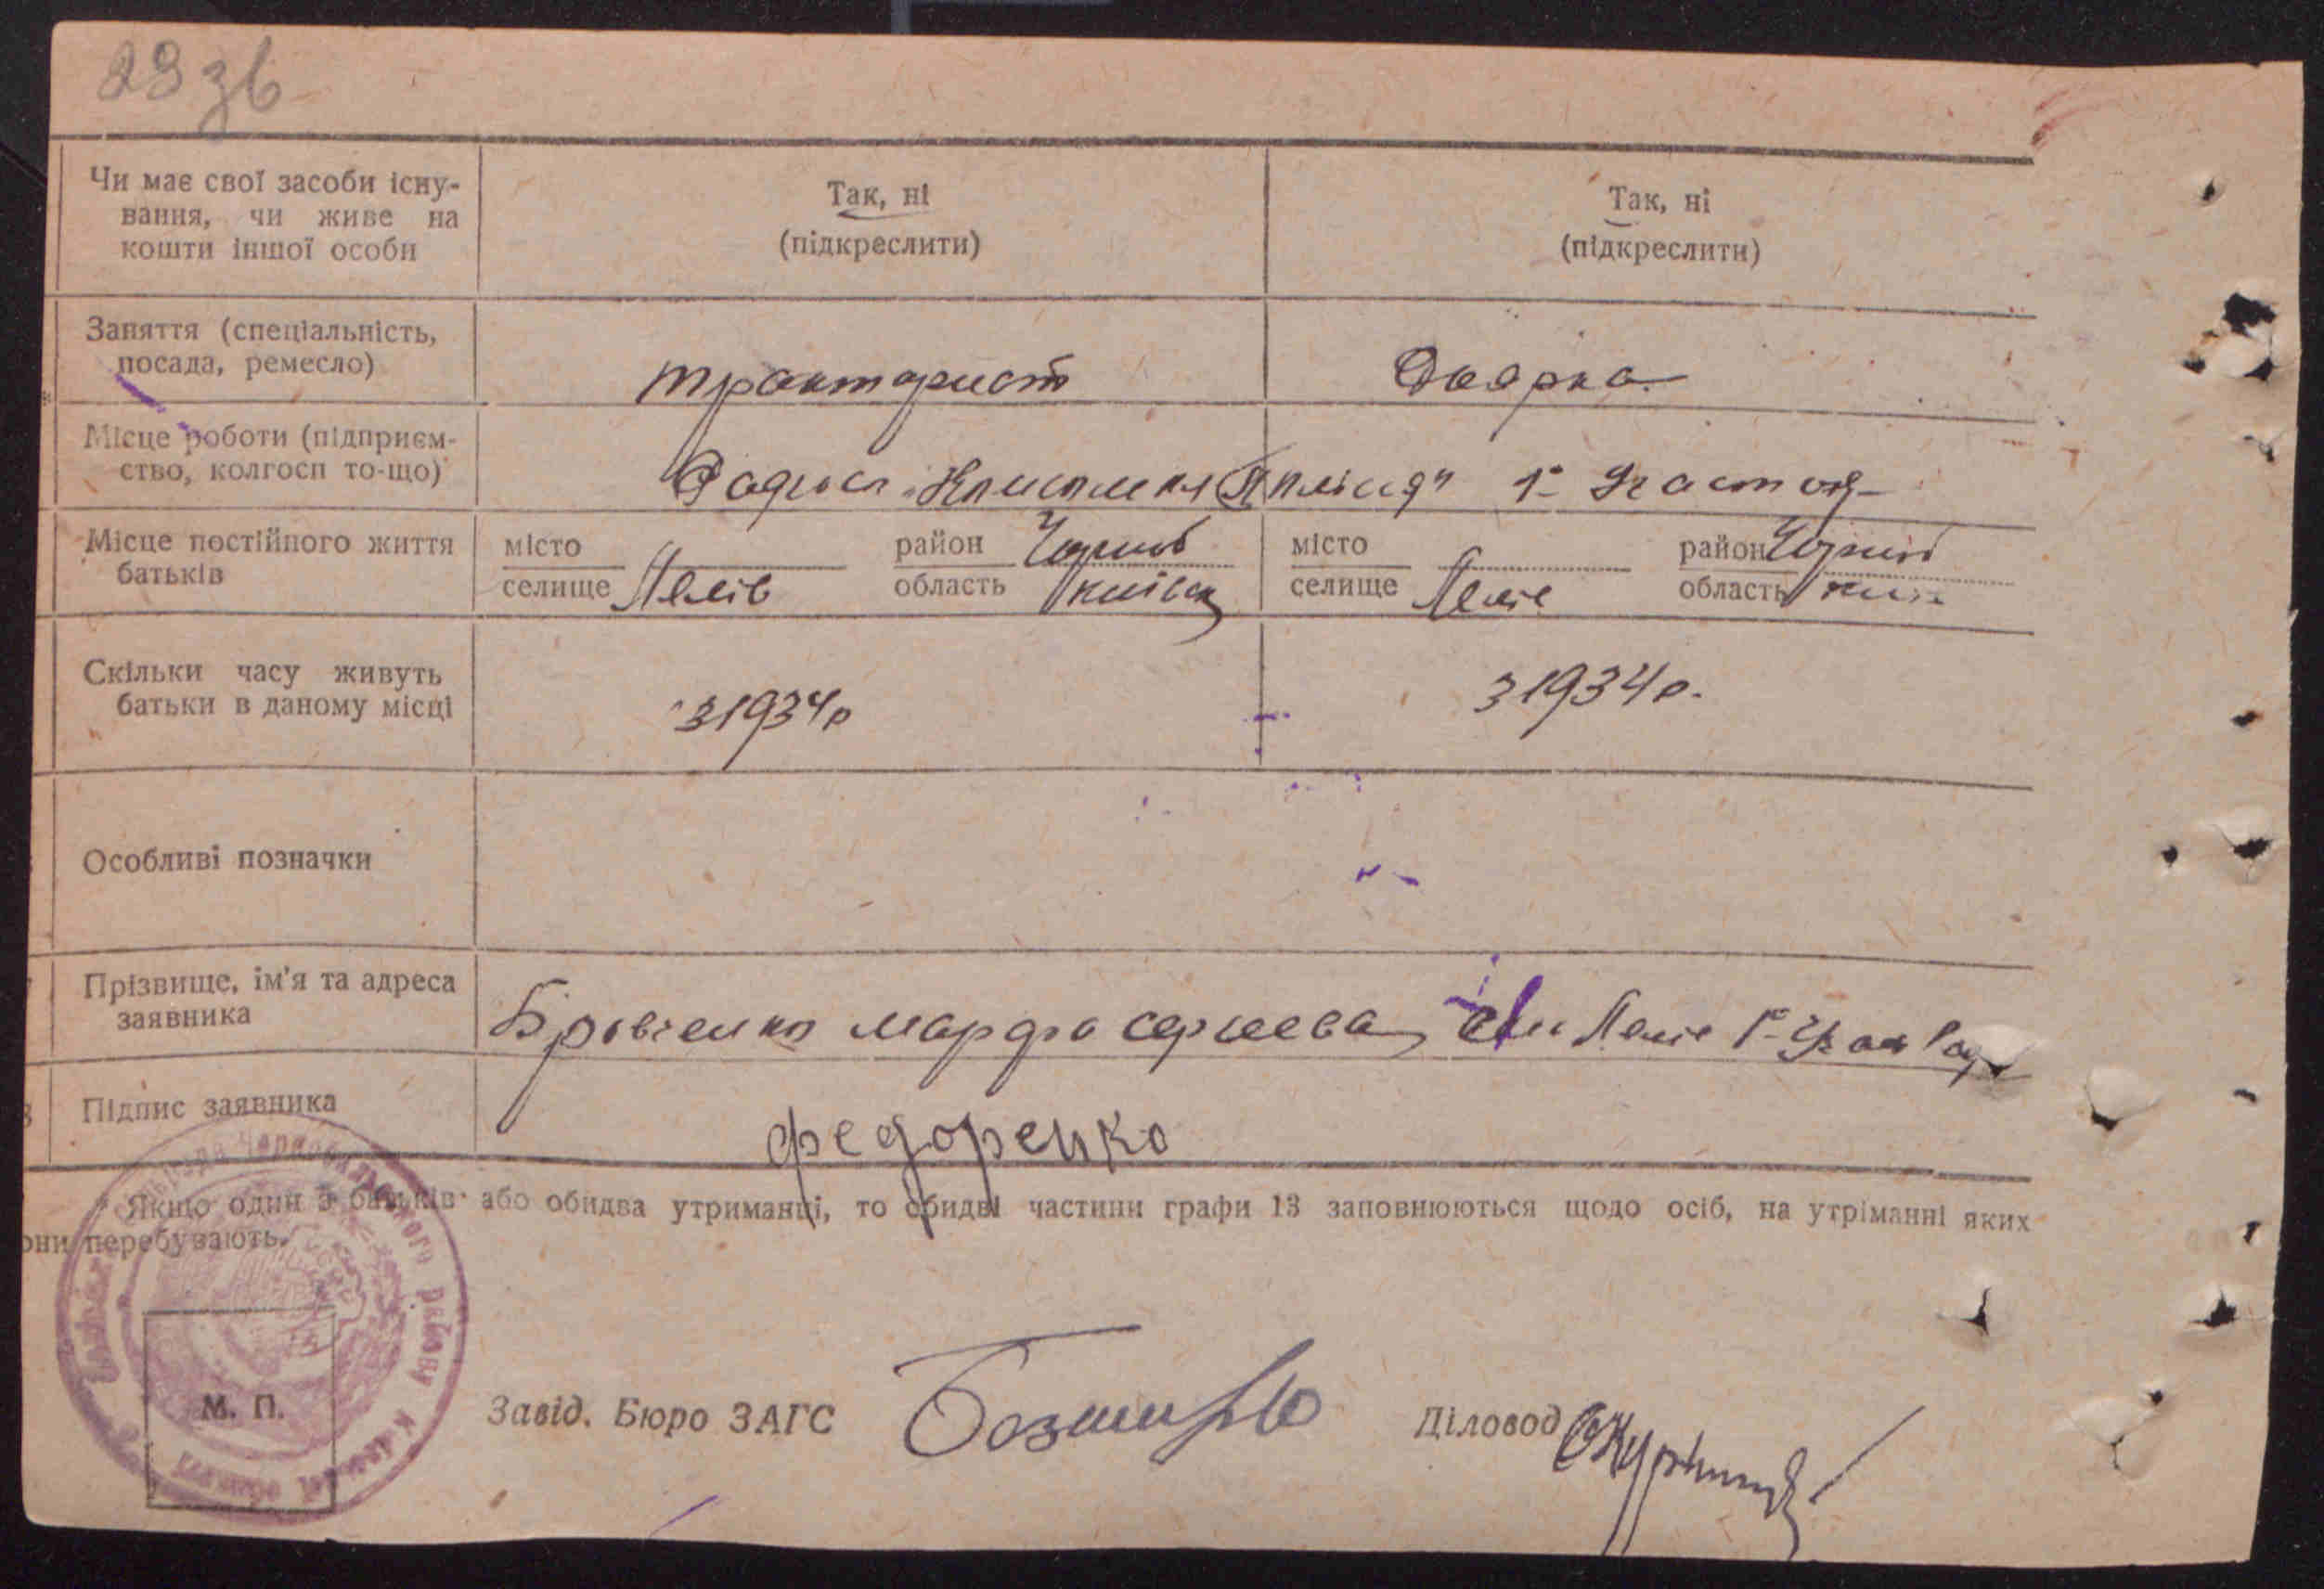 29 зв
Чи має свої засоби існу-
вання, чи живе на
кошти іншої особи
Так, ні
(підкреслити)
Так, ні
(підкреслити)
Заняття (спеціальність,
посада, ремесло)
тракторист
Доярка
Місце роботи (підприєм-
ство, колгосп то-що)
Радгосп
Місце постійного життя
батьків
місто
селище Лелів
район Чорноб
область Київск
місто
селище Лелів
район Чорноб
область Київ
Скільки часу живуть
батьки в даному місці
з 1934р
з 1934р.
Особливі позначки
Прізвище, ім'я та адреса
заявника
Бровченко Марфа Сергеева
Підпис заявника
Федоренко
* Якщо один з батьків або обидва утриманці, то обидві частини графи 13 заповнюються щодо осіб, на утріманні яких
они перебувають.
М. П.
Завід. Бюро ЗАГС
Діловод